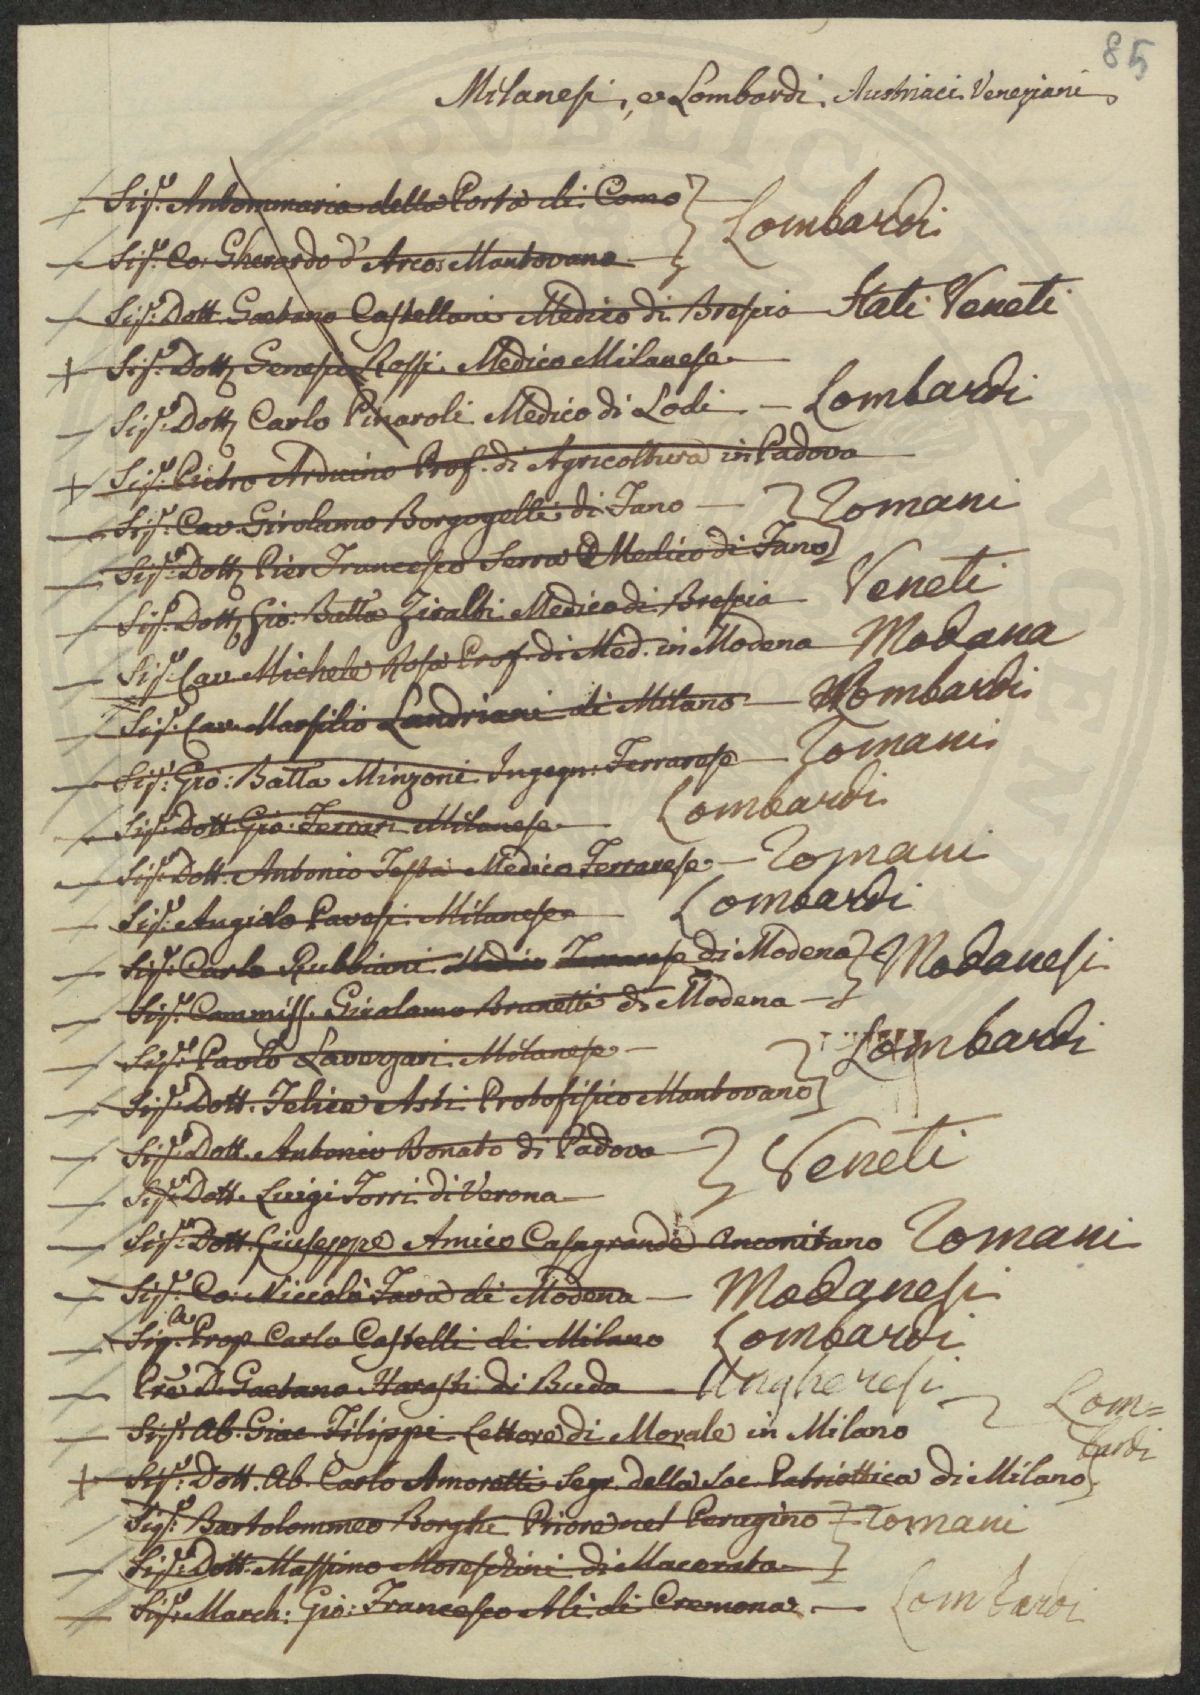 85
Milanesi, e Lombardi, Austriaci Veneziani
Sigr. Antommaria della Porta di Como } Lombardi
Sigr. Co: Gherardo d'Arco Mantovano
Sigr. Dott. Gaetano Castellani Medico di Brescia Stati Veneti
+ Sigr. Dott. Genesi Rossi Medico Milanese
Sigr. Dott. Carlo Pinaroli Medico di Lodi - Lombardi
+ Sigr. Pietro Arduino Prof. di Agricoltura in Padova
Sigr. Cav. Girolamo Borgogelli di Fano } Romani
Sigr. Dott. Pier Francesco Serra Medico di Fano
Sigr. Dott. Gio: Batta Ziralbi Medico di Brescia Veneti
Sigr. Cav. Michele Rosa Prof. di Med. in Modena Modana
Sigr. Cav. Marsilio Landriani di Milano Lombardi
Sigr. Gio: Batta Minzoni Ingegn: Ferrarese Romani
Sigr. Dott. Gio: Ferrari Milanese Lombardi
Sigr. Dott. Antonio Testa Medico Ferrarese Romani
Sigr. Angiolo Pavesi Milanese Lombardi
Sigr. Carlo Rubbiani Medico Ferrarese di Modena } Modanesi
Sigr. Commiss. Girolamo Brunetti di Modena
Sigr. Paolo Lavezzari Milanese } Lombardi
Sigr. Dott. Felice Asti Protofisico Mantovano
Sigr. Dott. Antonio Bonato di Padova } Veneti
Sigr. Dott. Luigi Torri di Verona
Sigr. Dott. Giuseppe Amico Casagrande Anconitano Romani
Sigr. Co: Niccolò Fava di Modena - Modanesi
Sigr. Prop. Carlo Castelli di Milano Lombardi
Pre D. Gaetano di Buda Ungheresi
Sigr. Ab. Giac. Filippi Lettore di Morale in Milano } Lom=
bardi
+ Sigr. Dott. Ab. Carlo Amoretti Segr. della Soc. Patriottica di Milano
Sigr. Bartolommeo Borghi Priore nel Perugino } Romani
Sigr. Dott. Massimo Moreschini di Macerata
Sigr. March: Gio: Francesco Ali di Cremona - Lombardi